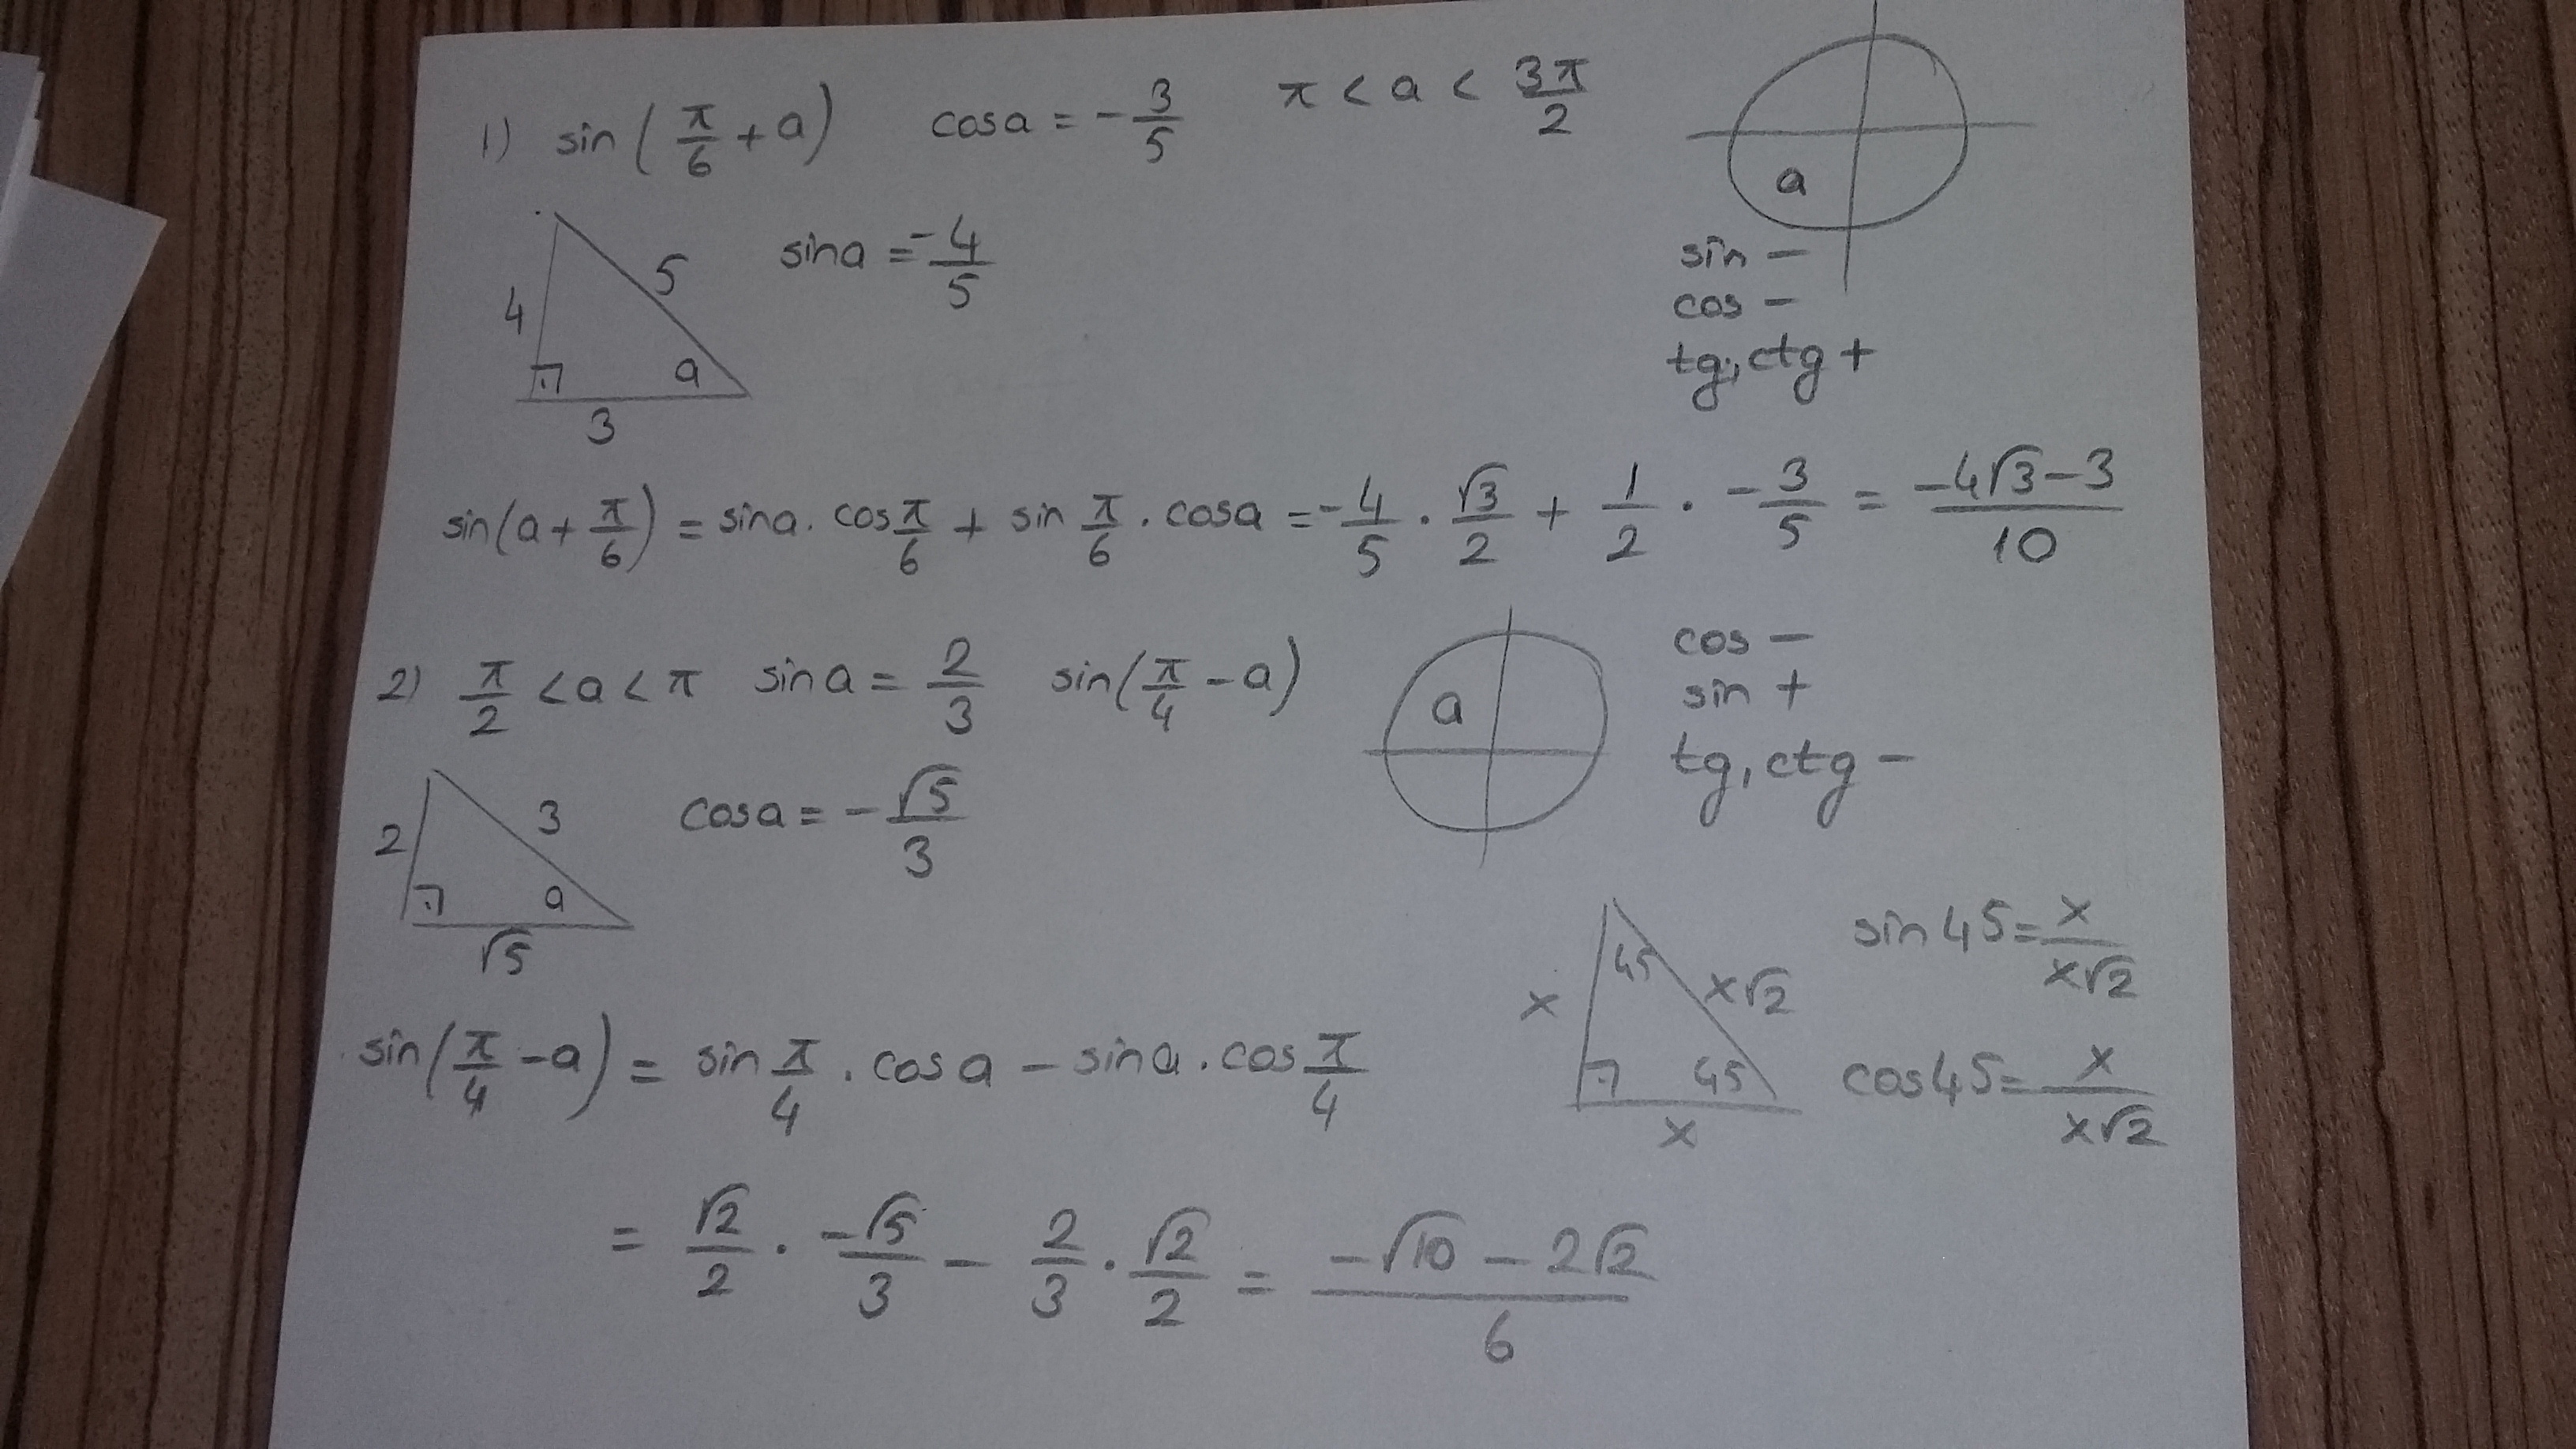 1) sin(π/6 + a) cos a = -3/5 π < a < 3π/2
a
sin -
cos -
tg, ctg +
4 5 3 a
sin a = -4/5
sin(a + π/6) = sin a . cos π/6 + sin π/6 . cos a = -4/5 . √3/2 + 1/2 . -3/5 = (-4√3 - 3)/10
2) π/2 < a < π sin a = 2/3 sin(π/4 - a)
a
cos -
sin +
tg, ctg -
2 3 √5 a
cos a = -√5/3
x 45 x√2 45 x
sin 45 = x/x√2
cos 45 = x/x√2
sin(π/4 - a) = sin π/4 . cos a - sin a . cos π/4
= √2/2 . -√5/3 - 2/3 . √2/2 = (-√10 - 2√2)/6